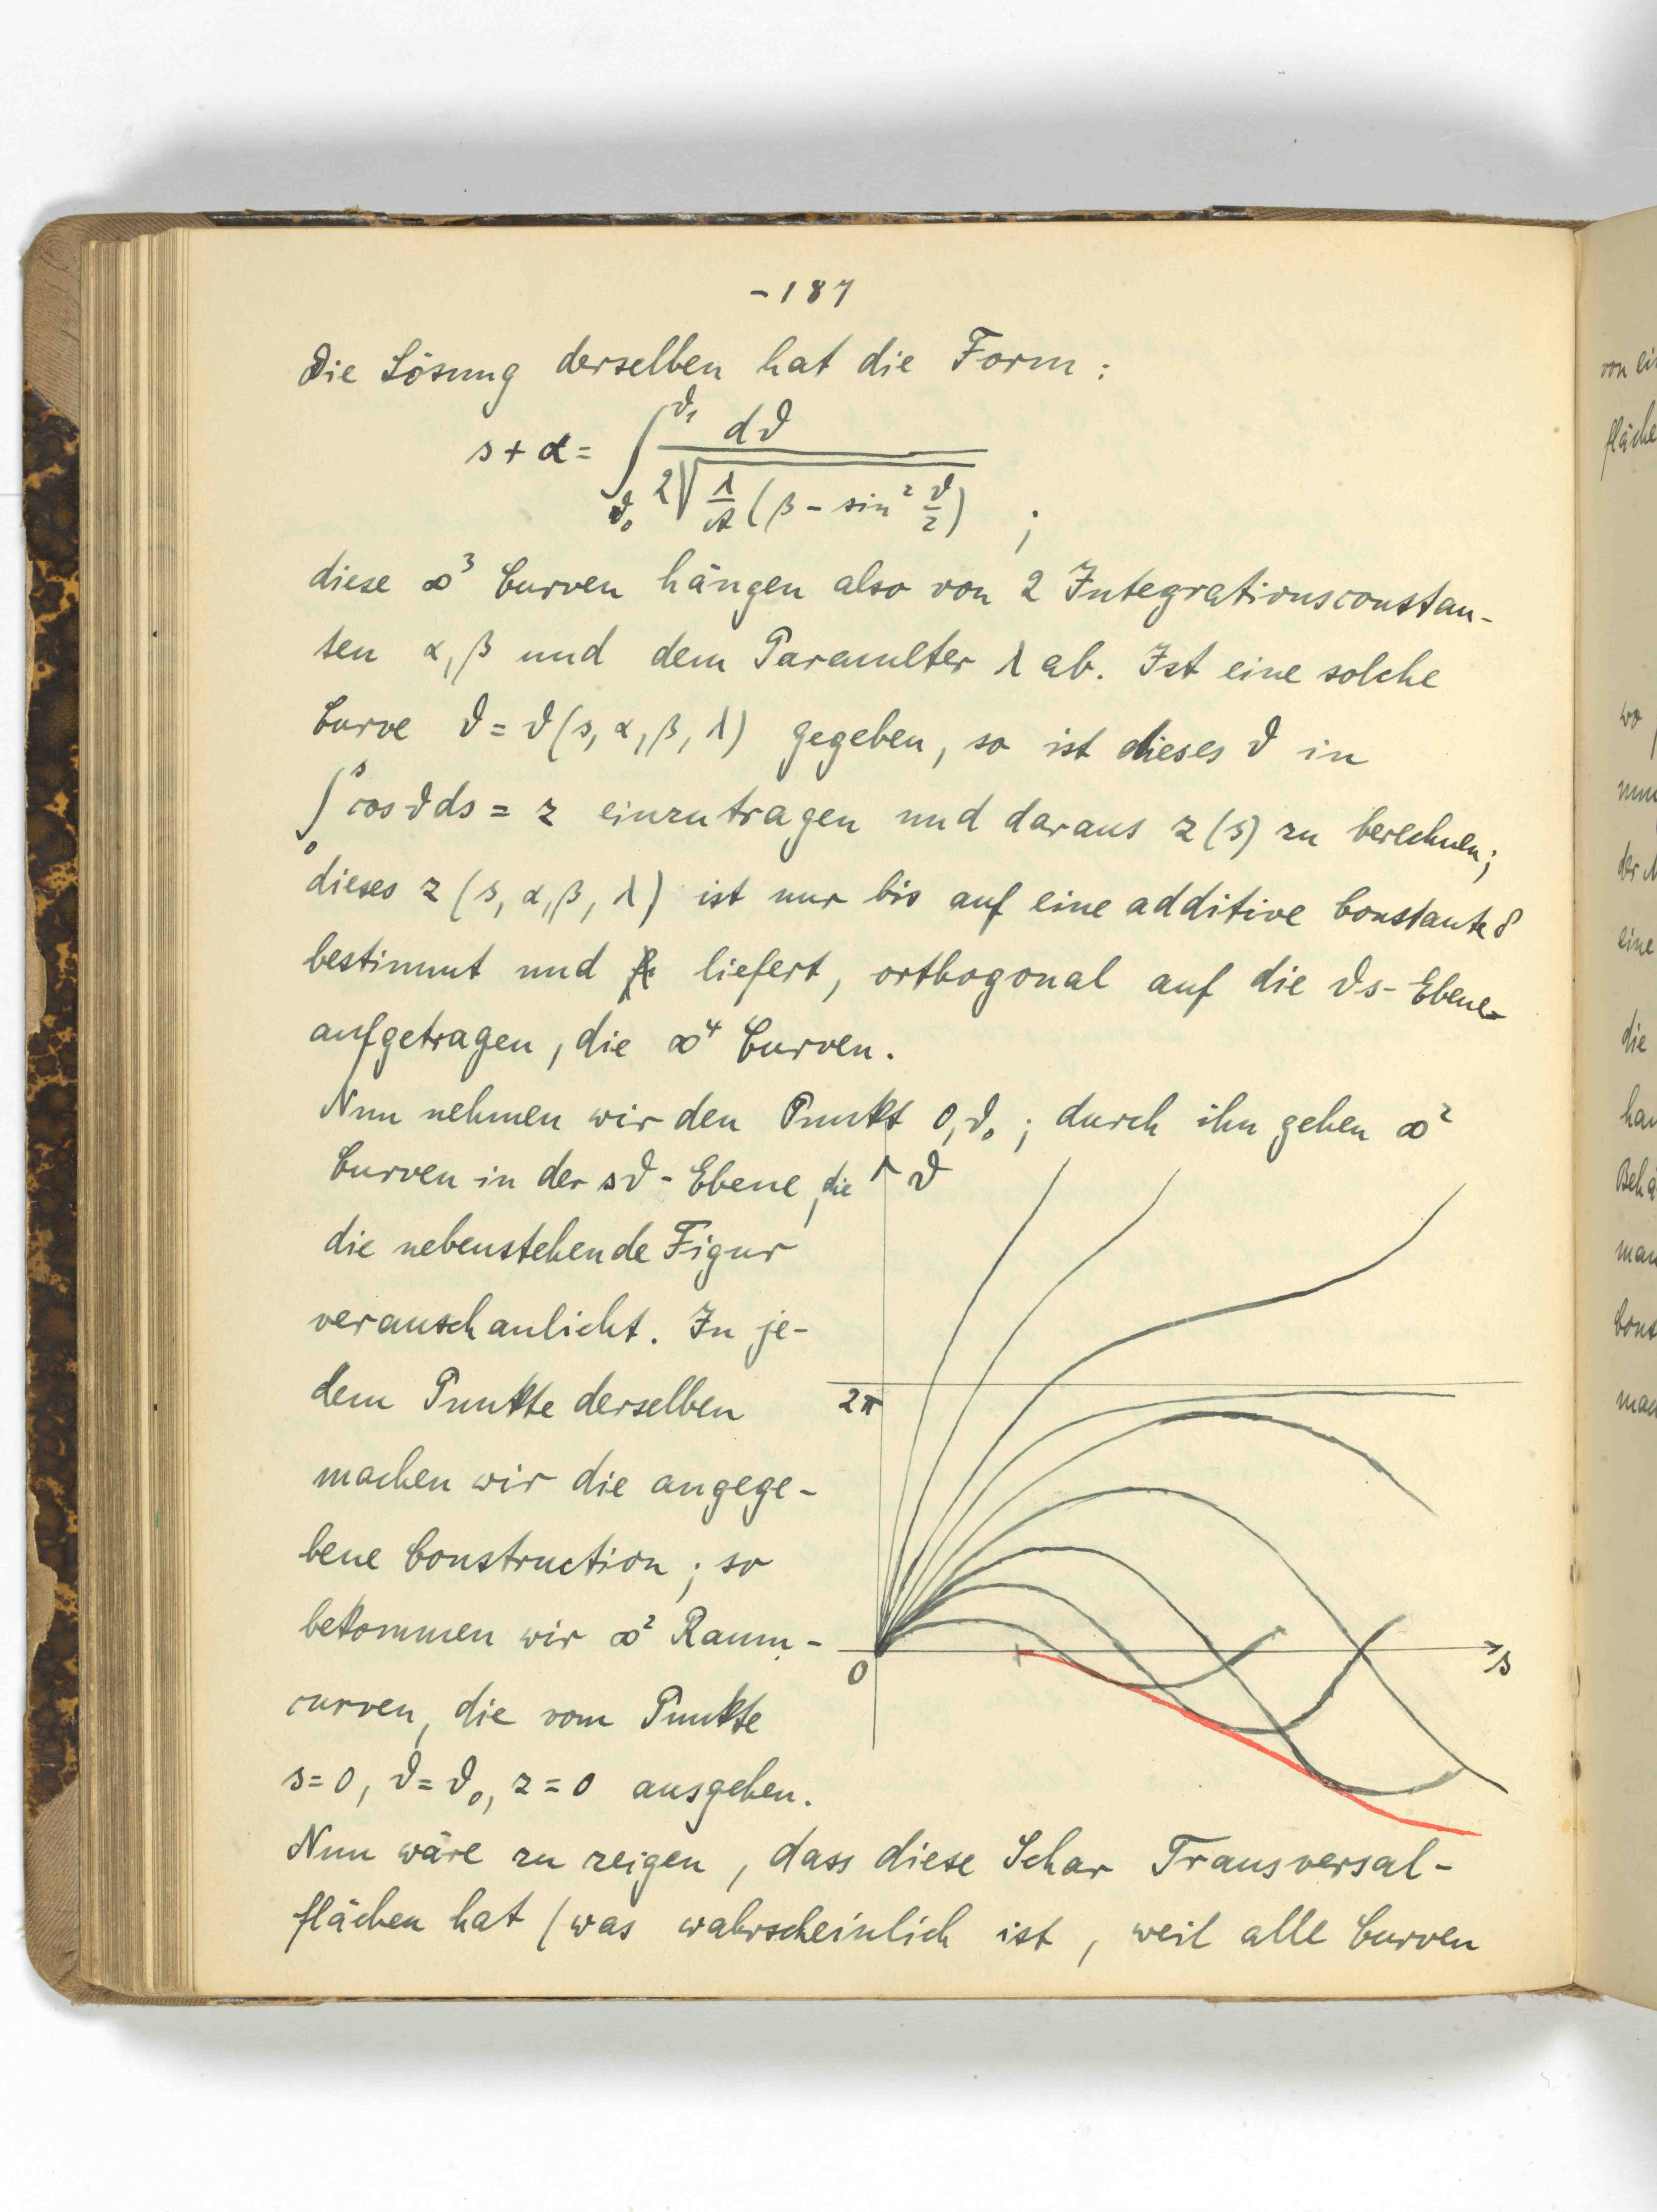 -187
Die Lösung derselben hat die Form:
s + α = ∫_{ϑ₀}^{ϑ₁} dϑ / (2√(λ/A (β - sin² ϑ/2))) ;
diese ∞³ Curven hängen also von 2 Integrationsconstan-
ten α, β und dem Parameter λ ab. Ist eine solche
Curve ϑ = ϑ(s, α, β, λ) gegeben, so ist dieses ϑ in
∫₀ˢ cos ϑ ds = z einzutragen und daraus z(s) zu berechnen;
dieses z(s, α, β, λ) ist nur bis auf eine additive Constante δ
bestimmt und liefert, orthogonal auf die ϑs-Ebene
aufgetragen, die ∞⁴ Curven.
Nun nehmen wir den Punkt 0, ϑ₀; durch ihn gehen ∞²
Curven in der sϑ-Ebene, die
die nebenstehende Figur
veranschaulicht. In je-
dem Punkte derselben
machen wir die angege-
bene Construction; so
bekommen wir ∞² Raum-
curven, die vom Punkte
s=0, ϑ=ϑ₀, z=0 ausgehen.
Nun wäre zu zeigen, dass diese Schar Transversal-
flächen hat (was wahrscheinlich ist, weil alle Curven
ϑ
2π
0
s
von ei
fläche
wo
nun
der
eine
die
han
Behä
man
Cons
mac